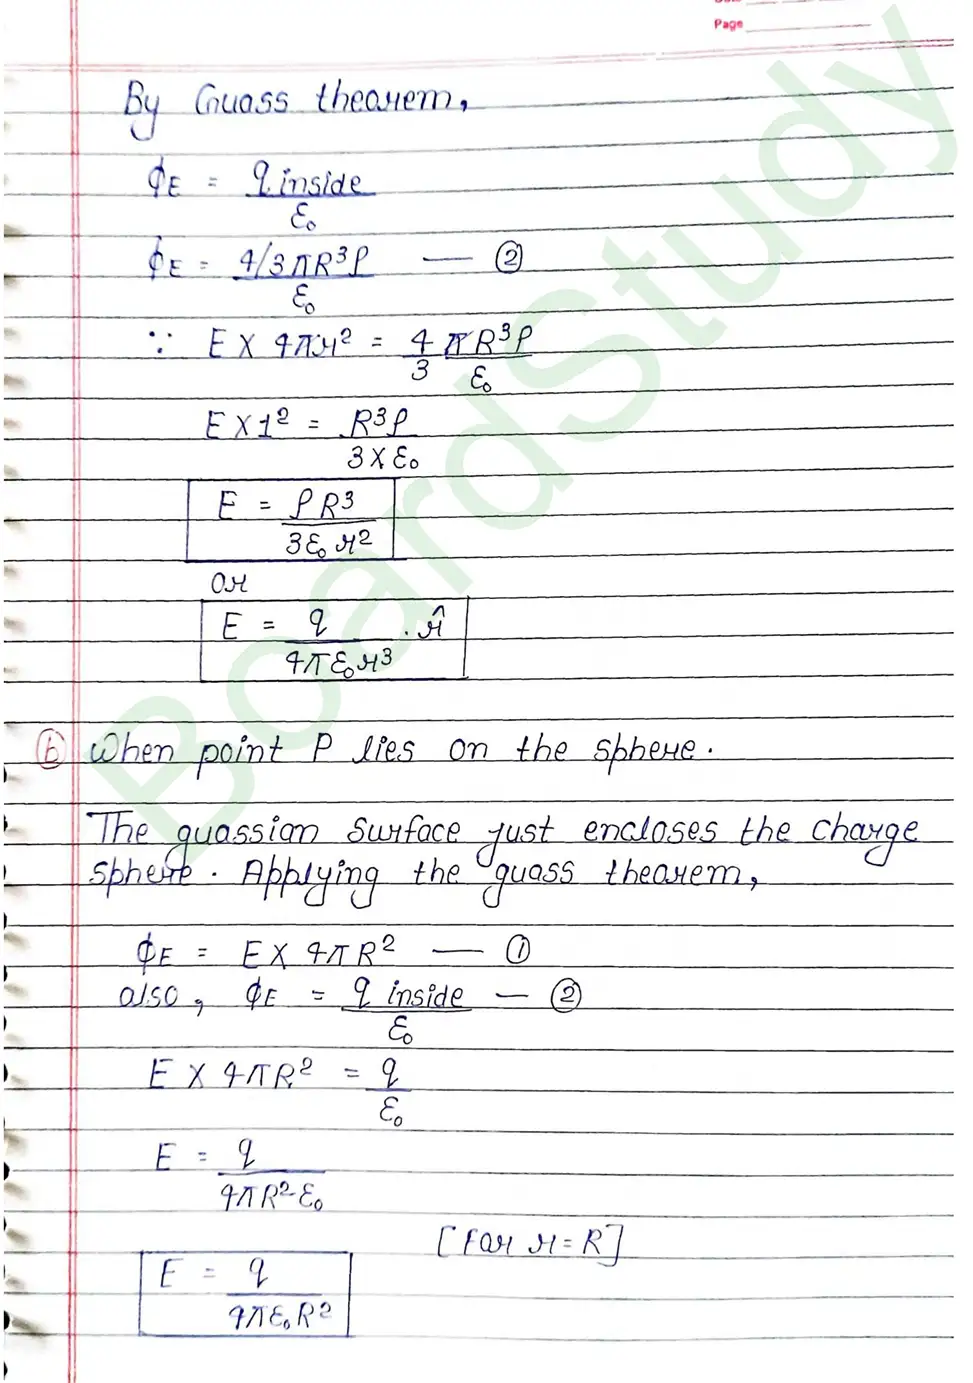 Page
By Guass theorem,
ϕE = q inside / ε₀
ϕE = 4/3 πR³ρ / ε₀ — ②
∵ E × 4πr² = 4/3 πR³ρ / ε₀
E × 1² = R³ρ / 3 × ε₀
E = ρR³ / 3ε₀ r²
or
E = q / 4πε₀r³ . r̂
ⓑ When point P lies on the sphere.
The guassian surface just encloses the charge
sphere. Applying the guass theorem,
ϕE = E × 4πR² — ①
also, ϕE = q inside / ε₀ — ②
E × 4πR² = q / ε₀
E = q / 4πR² ε₀
[For r = R]
E = q / 4πε₀R²
BoardStudy